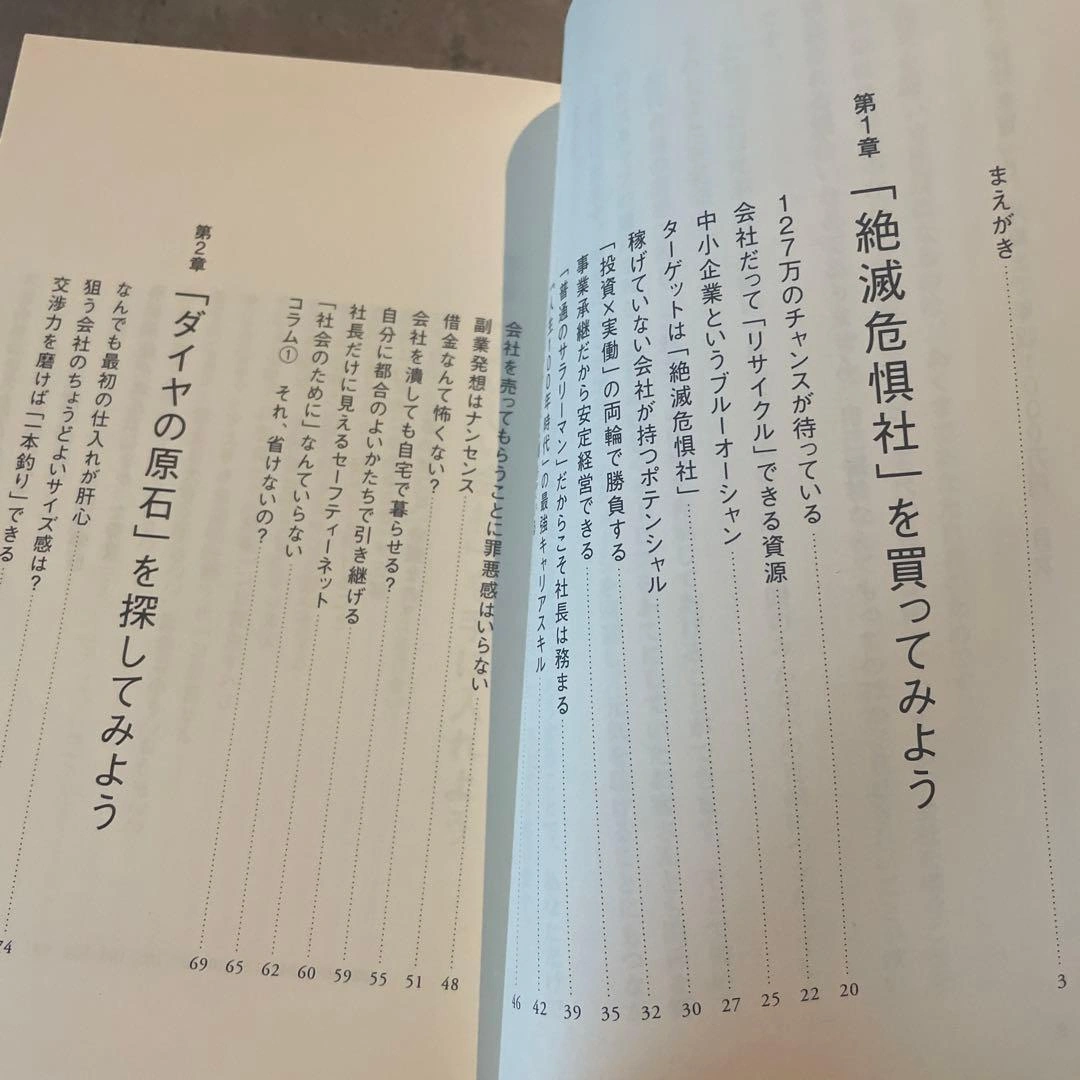 まえがき 3
第1章 「絶滅危惧社」を買ってみよう
127万のチャンスが待っている 20
会社だって「リサイクル」できる資源 22
中小企業というブルーオーシャン 25
ターゲットは「絶滅危惧社」 27
稼げていない会社が持つポテンシャル 30
「投資×実働」の両輪で勝負する 32
事業承継だから安定経営できる 35
「普通のサラリーマン」だからこそ社長は務まる 39
「人生100年時代」の最強キャリアスキル 42
46
会社を売ってもらうことに罪悪感はいらない 48
副業発想はナンセンス 51
借金なんて怖くない? 55
会社を潰しても自宅で暮らせる? 59
自分に都合のよいかたちで引き継げる 60
社長だけに見えるセーフティーネット 62
「社会のために」なんていらない 65
コラム① それ、省けないの? 69
第2章 「ダイヤの原石」を探してみよう
なんでも最初の仕入れが肝心 74
狙う会社のちょうどよいサイズ感は?
交渉力を磨けば「一本釣り」できる